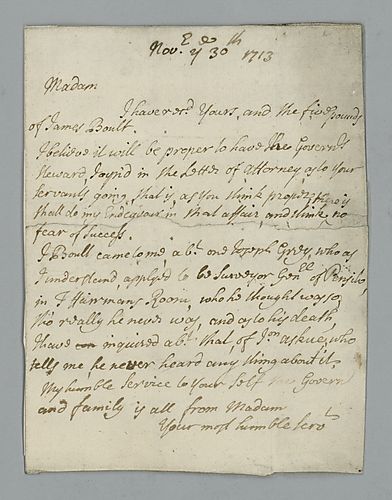 Nov.ᵉ yᵉ 30ᵗʰ 1713
Madam
I have recᵈ Yours, and the five Pounds
of James Boult.
I believe it will be proper to have the Governʳˢ
Steward, Joynd in the Letter of Attorney as to Your
servants going, that is, as you think proper,
shall do my Endeavour in that affair, and think no
fear of success.
J Boult came to me abᵗ one Joseph Grey, who as
I understand, applyed to be Surveyor Genˡˡ of
in Room, who he thought was so
tho really he never was, and as to his death
I have inquired abᵗ that of Jⁿ askue, who
tells me, he never heard any thing about it,
My humble Service to Your self Govern
and family is all from Madam
Your most humble Servᵗ